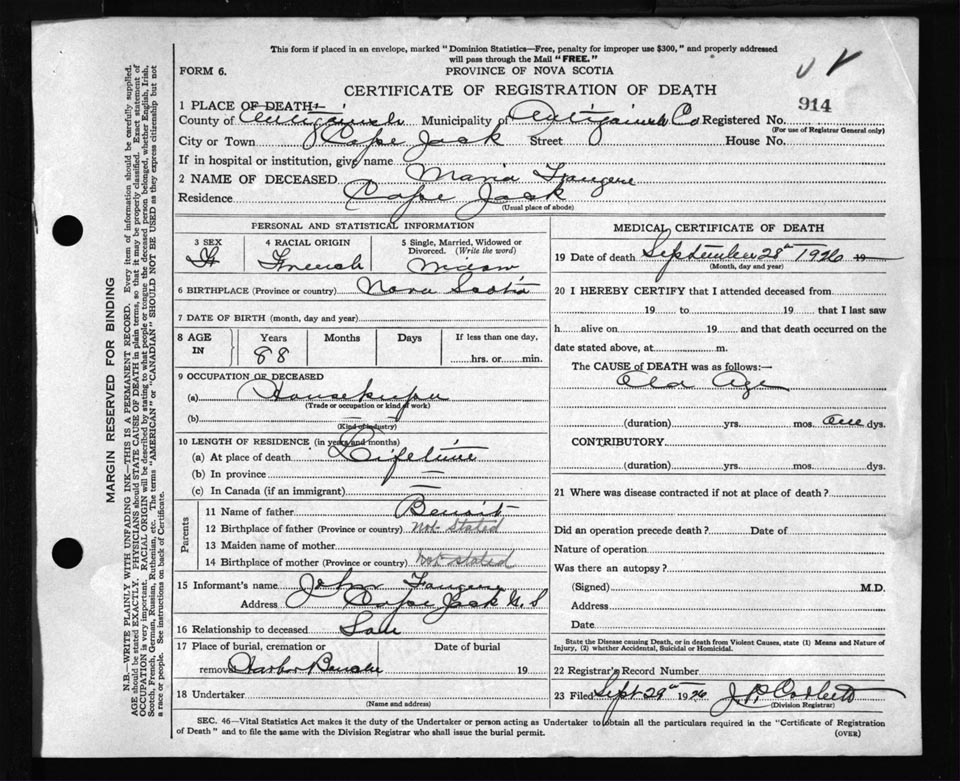 This form if placed in an envelope, marked "Dominion Statistics—Free, penalty for improper use $300," and properly addressed
will pass through the Mail "FREE."
FORM 6.
PROVINCE OF NOVA SCOTIA
CERTIFICATE OF REGISTRATION OF DEATH
914
1 PLACE OF DEATH
County of Antigonish Municipality of Antigonish Co Registered No.
(For use of Registrar General only)
City or Town Cape Jack Street House No.
If in hospital or institution, give name
2 NAME OF DECEASED Maria Fougere
Residence Cape Jack
(Usual place of abode)
PERSONAL AND STATISTICAL INFORMATION
3 SEX 4 RACIAL ORIGIN 5 Single, Married, Widowed or
Divorced. (Write the word)
F French Widow
6 BIRTHPLACE (Province or country) Nova Scotia
7 DATE OF BIRTH (month, day and year)
8 AGE
IN
Years Months Days If less than one day,
88 hrs. or min.
9 OCCUPATION OF DECEASED
(a) Housekeeper
(Trade or occupation or kind of work)
(b) —
(Kind of industry)
10 LENGTH OF RESIDENCE (in years and months)
(a) At place of death Lifetime
(b) In province —
(c) In Canada (if an immigrant) —
Parents
11 Name of father Benoit
12 Birthplace of father (Province or country) Not Stated
13 Maiden name of mother
14 Birthplace of mother (Province or country) Not stated
15 Informant's name John Fougere
Address Cape Jack N.S
16 Relationship to deceased Son
17 Place of burial, cremation or Date of burial
removal Harbor Bouche 19
18 Undertaker
(Name and address)
MEDICAL CERTIFICATE OF DEATH
19 Date of death September 28th 1926 19
(Month, day and year)
20 I HEREBY CERTIFY that I attended deceased from
19 to 19 that I last saw
h alive on 19 and that death occurred on the
date stated above, at m.
The CAUSE of DEATH was as follows:—
Old Age
(duration) yrs. mos. One dys.
CONTRIBUTORY
(duration) yrs. mos. dys.
21 Where was disease contracted if not at place of death?
Did an operation precede death? Date of
Nature of operation
Was there an autopsy?
(Signed) M.D.
Address
Date
State the Disease causing Death, or in death from Violent Causes, state (1) Means and Nature of
Injury, (2) whether Accidental, Suicidal or Homicidal.
22 Registrar's Record Number
23 Filed Sept 29th 1926 J P Corbett
(Division Registrar)
SEC. 46—Vital Statistics Act makes it the duty of the Undertaker or person acting as Undertaker to obtain all the particulars required in the "Certificate of Registration
of Death" and to file the same with the Division Registrar who shall issue the burial permit.
(OVER)
MARGIN RESERVED FOR BINDING
N.B.—WRITE PLAINLY WITH UNFADING INK—THIS IS A PERMANENT RECORD. Every item of information should be carefully supplied.
AGE should be stated EXACTLY. PHYSICIANS should STATE CAUSE OF DEATH in plain terms, so that it may be properly classified. Exact statement of
OCCUPATION is very important. RACIAL ORIGIN will be described by stating to what people or tongue the deceased person belonged, whether English, Irish,
Scotch, French, German, Russian, Ruthenian, etc. The terms "AMERICAN" or "CANADIAN" SHOULD NOT BE USED as they express citizenship but not
a race or people. See instructions on back of Certificate.